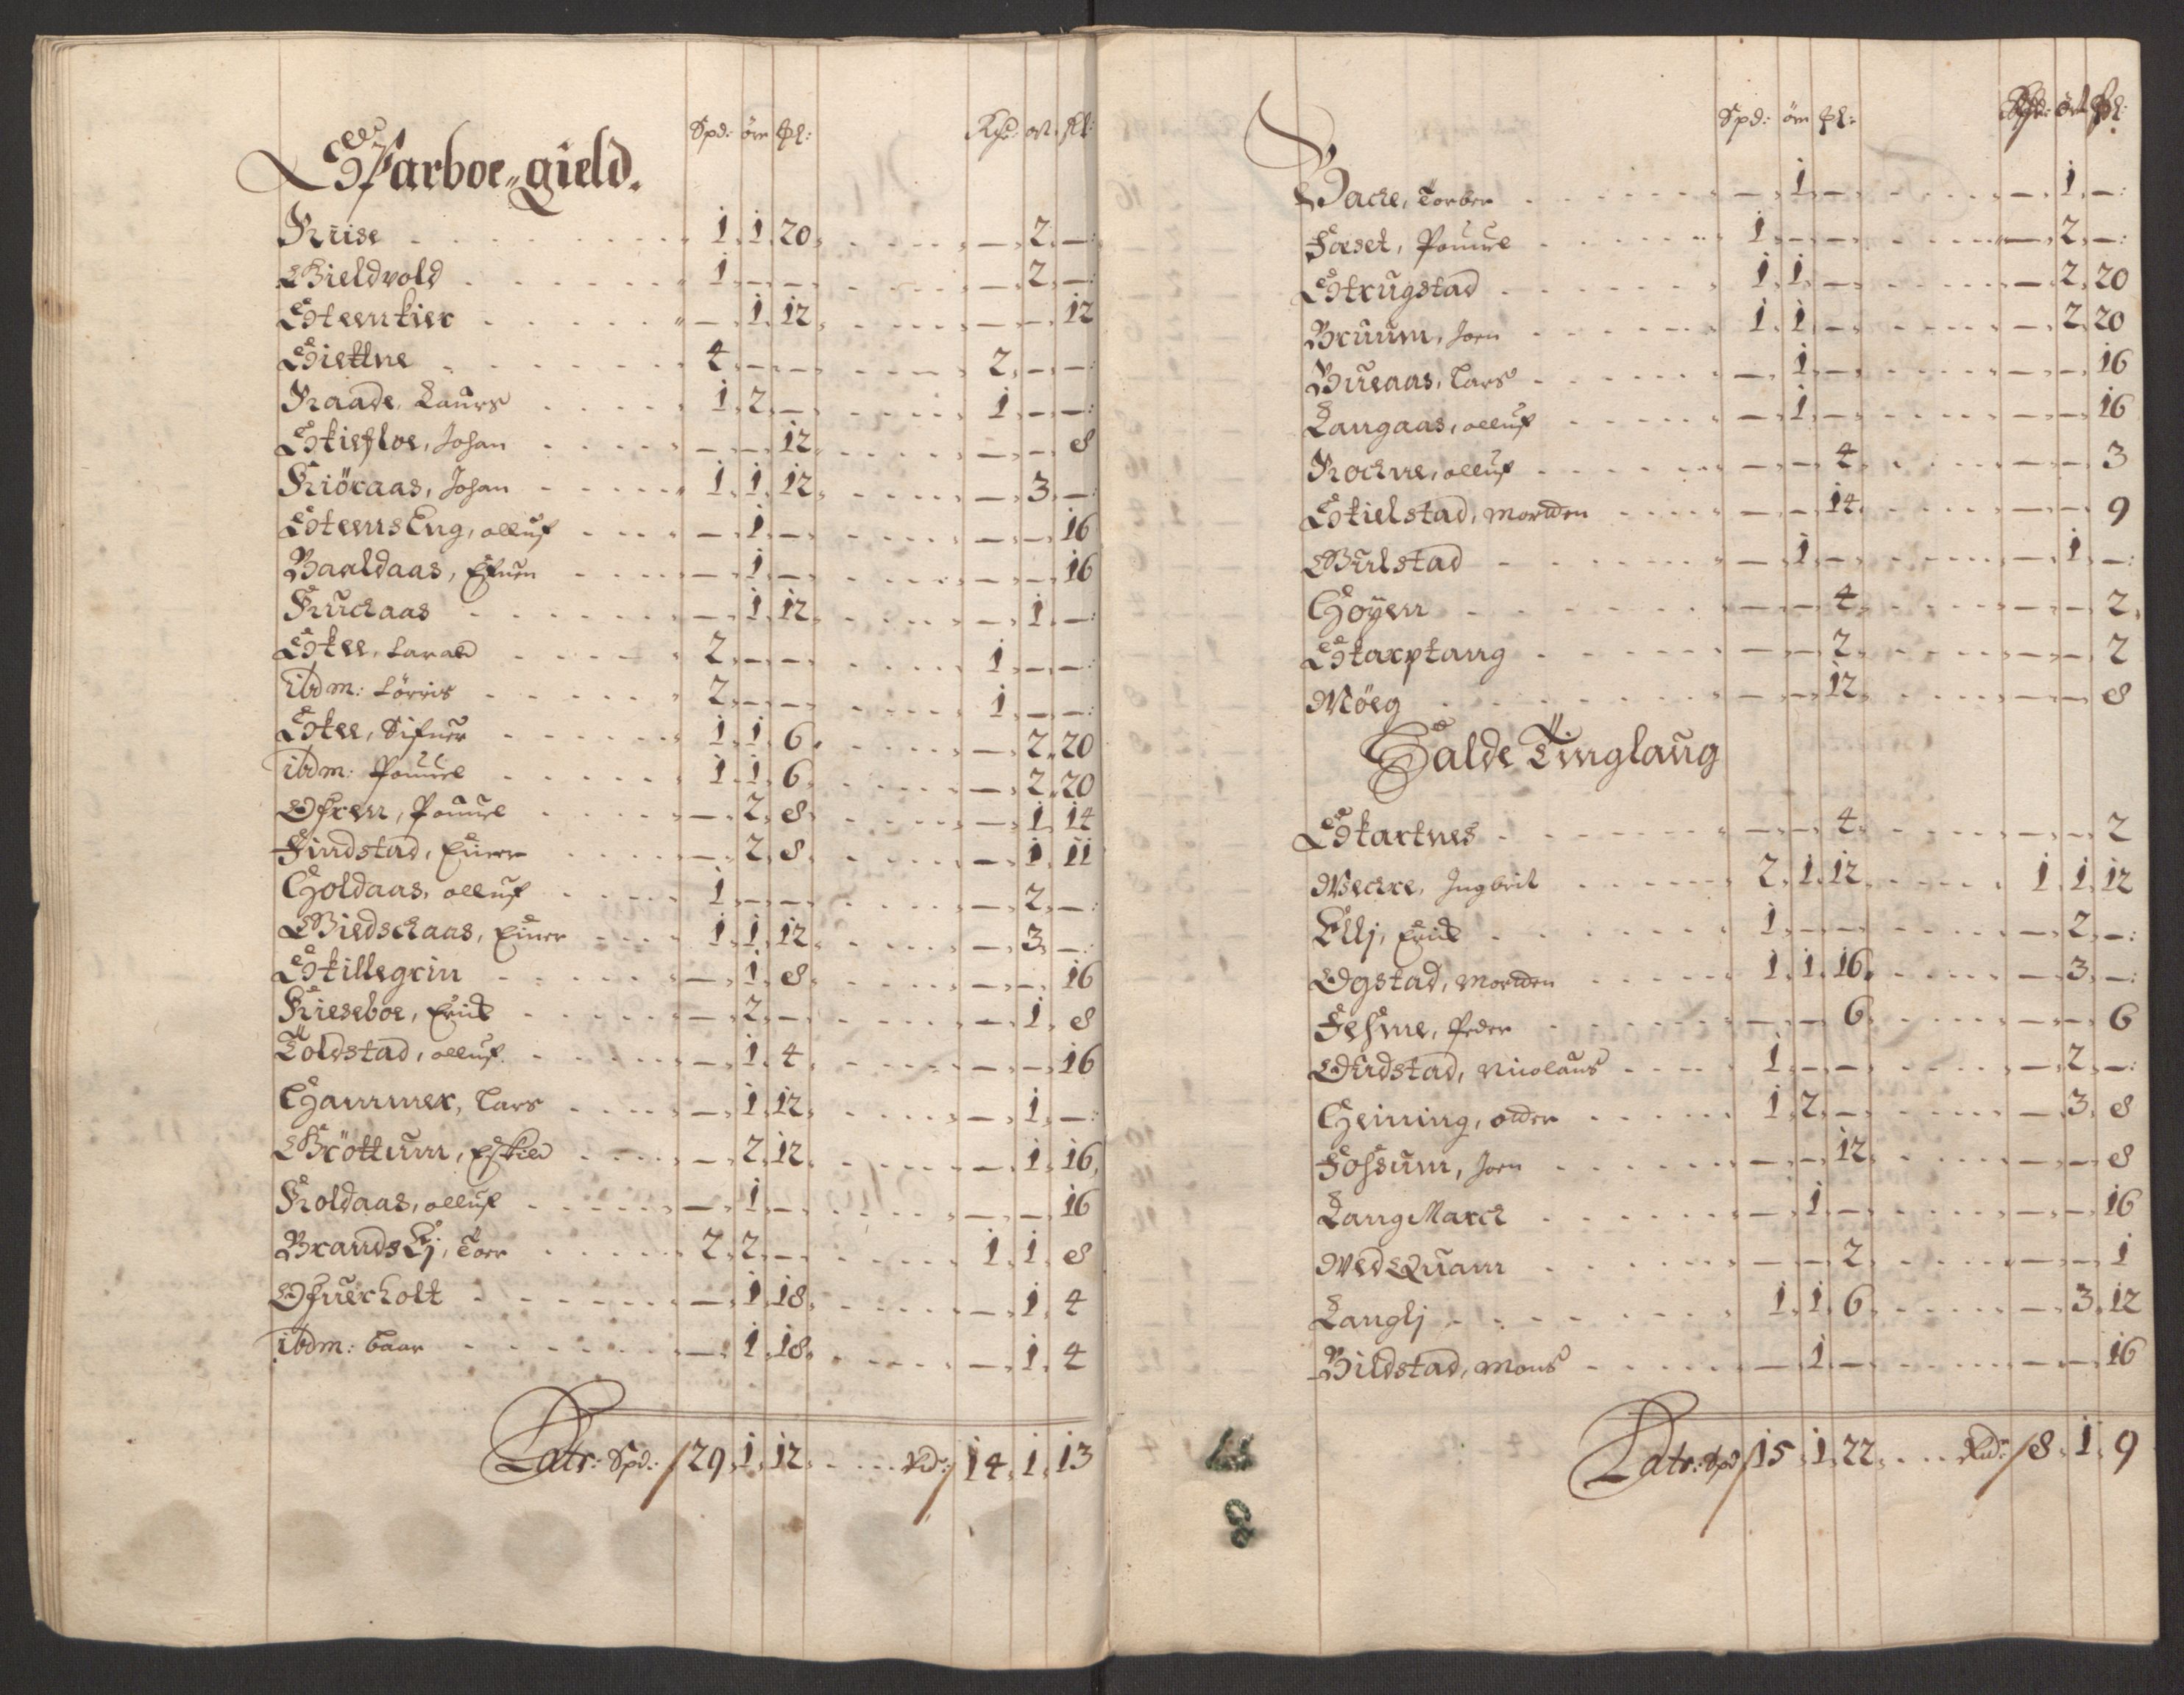 Sparboe-gield.
Spd: ört ßl: Rdr: ort ßl:
Kiise 1. 1. 20. — 2. —:
Gieldvold 1. — — — 2. —:
Steenkier — 1. 12. — — 12
Giettne 4. — — 2. — —:
Kaade, Laurs 1. 2. — 1. — —:
Skiefloe, Johan — — 12. — — 8
Kiöraas, Johan 1. 1. 12. — 3. —:
SteensEng, olluf — 1. — — — 16
Baaldaas, Efuen — 1. — — — 16
Kuckaas — 1. 12. — 1. —:
Skee, Larald 2. — — 1. — —:
ibdm: Lörris 2. — — 1. — —:
Skee, Sifuer 1. 1. 6. — 2. 20
ibdm: Pouuel 1. 1. 6. — 2. 20
Ofren, Pouuel — 2. 8. — 1. 14
Findstad, Einer — 2. 8. — 1. 11
Holdaas, olluf 1. — — — 2. —:
Giedsckaas, Einer 1. 1. 12. — 3. —:
Skillegrin — 1. 8. — — 16
Kieseboe, Erick — 2. — — 1. 8
Toldstad, olluf — 1. 4. — — 16
Hammer, Lars — 1. 12. — 1. —:
Gröttum, Eskild — 2. 12. — 1. 16
Koldaas, olluf — 1. — — — 16
BrandsEj, Torr 2. 2. — 1. 1. 8
Ofuerholt — 1. 18. — 1. 4
ibdm: baar — 1. 18. — 1. 4
Latr: Spd: 29. 1. 12. Rd: 14. 1. 13
Spd: ört ßl: Rdr: ört ßl:
Backe, Torber — 1. — — 1. —:
Foeset, Pouuel 1. — — — 2. —:
Strugstad 1. 1. — — 2. 20
Bruum, Joen 1. 1. — — 2. 20
Bueaas, Lars — 1. — — — 16
Langaas, olluf — 1. — — — 16
Kockne, olluf — — 4. — — 3
Skielstad, Mortden — — 14. — — 9
Gulstad — 1. — — 1. —:
Höyen — — 4. — — 2
Skarptang — — 2. — — 2
Möeg — — 12. — — 8
Salde Tinglaug
Skartnes — — 4. — — 2
Meckre, Ingbrit 2. 1. 12. 1. 1. 12
Ellj, Erick 1. — — — 2. —:
Ogstad, Mortden 1. 1. 16. — 3. —:
Fosne, Peder — — 6. — — 6
Oudstad, Nicolaus 1. — — — 2. —:
Heining, older 1. 2. — — 3. 8
Fossum, Joen — — 12. — — 8
LangMarck — 1. — — — 16
MedsQuam — — 2. — — 1
Langlj 1. 1. 6. — 3. 12
Bildstad, Mons — 1. — — — 16
Latr: Spd 15. 1. 22. Rd: 8. 1. 9